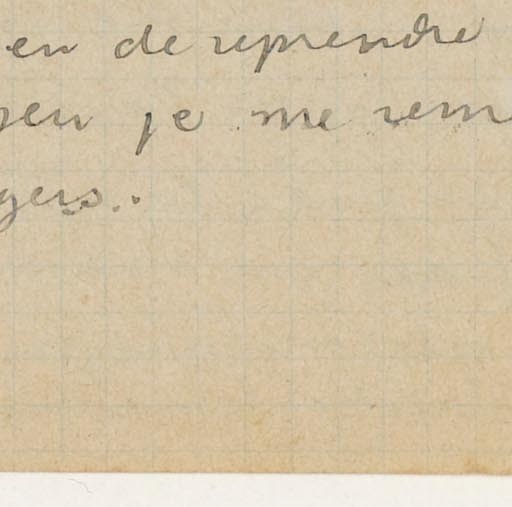 en de reprendre
peu je me rem
gers..